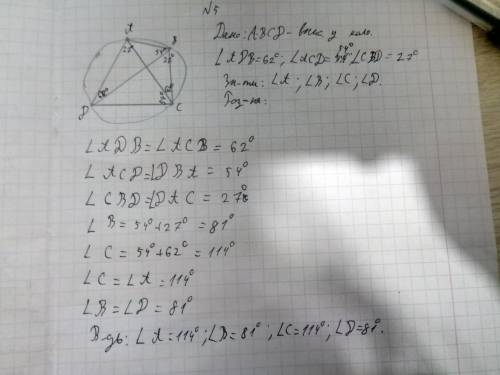 №5
Дано: ABCD - впис. у коло.
∠ADB=62°; ∠ACD=54°; ∠CBD=27°
Зн-ти: ∠A; ∠B; ∠C; ∠D.
Роз-ня:
A
B
27°
54°
27°
D
C
∠ADB=∠ACB=62°
∠ACD=∠DBA=54°
∠CBD=∠DAC=27°
∠B=54°+27°=81°
∠C=54°+62°=114°
∠C=∠A=114°
∠B=∠D=81°
В-дь: ∠A=114°; ∠B=81°; ∠C=114°; ∠D=81°.